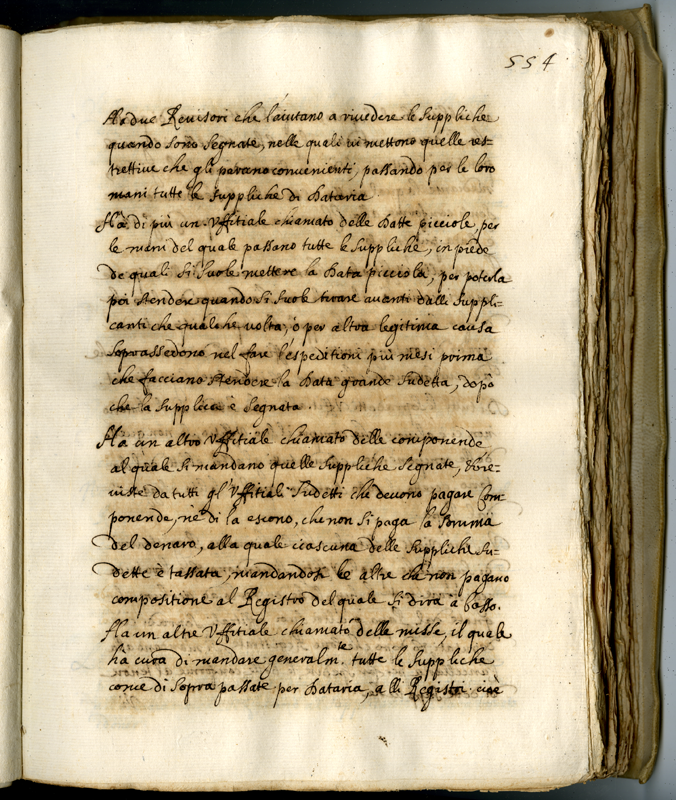 554
Ha due Revisori che l'aiutano a rivedere le suppliche
quando sono segnate, nelle quali vi mettono quelle res-
trettive che gli parano convenienti, passando per le loro
mani tutte le suppliche di Dataria
Ha di più un Uffitiale chiamato delle Datte picciole, per
le mani del quale passano tutte le suppliche, in piede
de quali si suole mettere la Data picciola, per poterla
poi stendere quando si suole tirare avanti dalli suppli-
canti che qualche volta, ò per altra legitima causa
soprassedono nel fare l'espeditioni più mesi prima
che facciano stendere la Data grande sudetta, dopò
che la supplica è segnata
Ha un altro Uffitiale chiamato delle componende
al quale si mandano quelle suppliche segnate, et re-
viste da tutti gl'Uffitiali sudetti che devono pagare Com-
ponende, ne di la escono, che non si paga la somma
del denaro, alla quale ciascuna delle suppliche su-
dette è tassata, mandandosi le altre che non pagano
compositione al Registro del quale si dirà à basso.
Ha un altre Uffitiale chiamato delle misse, il quale
ha cura di mandare generalm.te tutte le suppliche
come di sopra passate per Dataria, alli Registri cioè